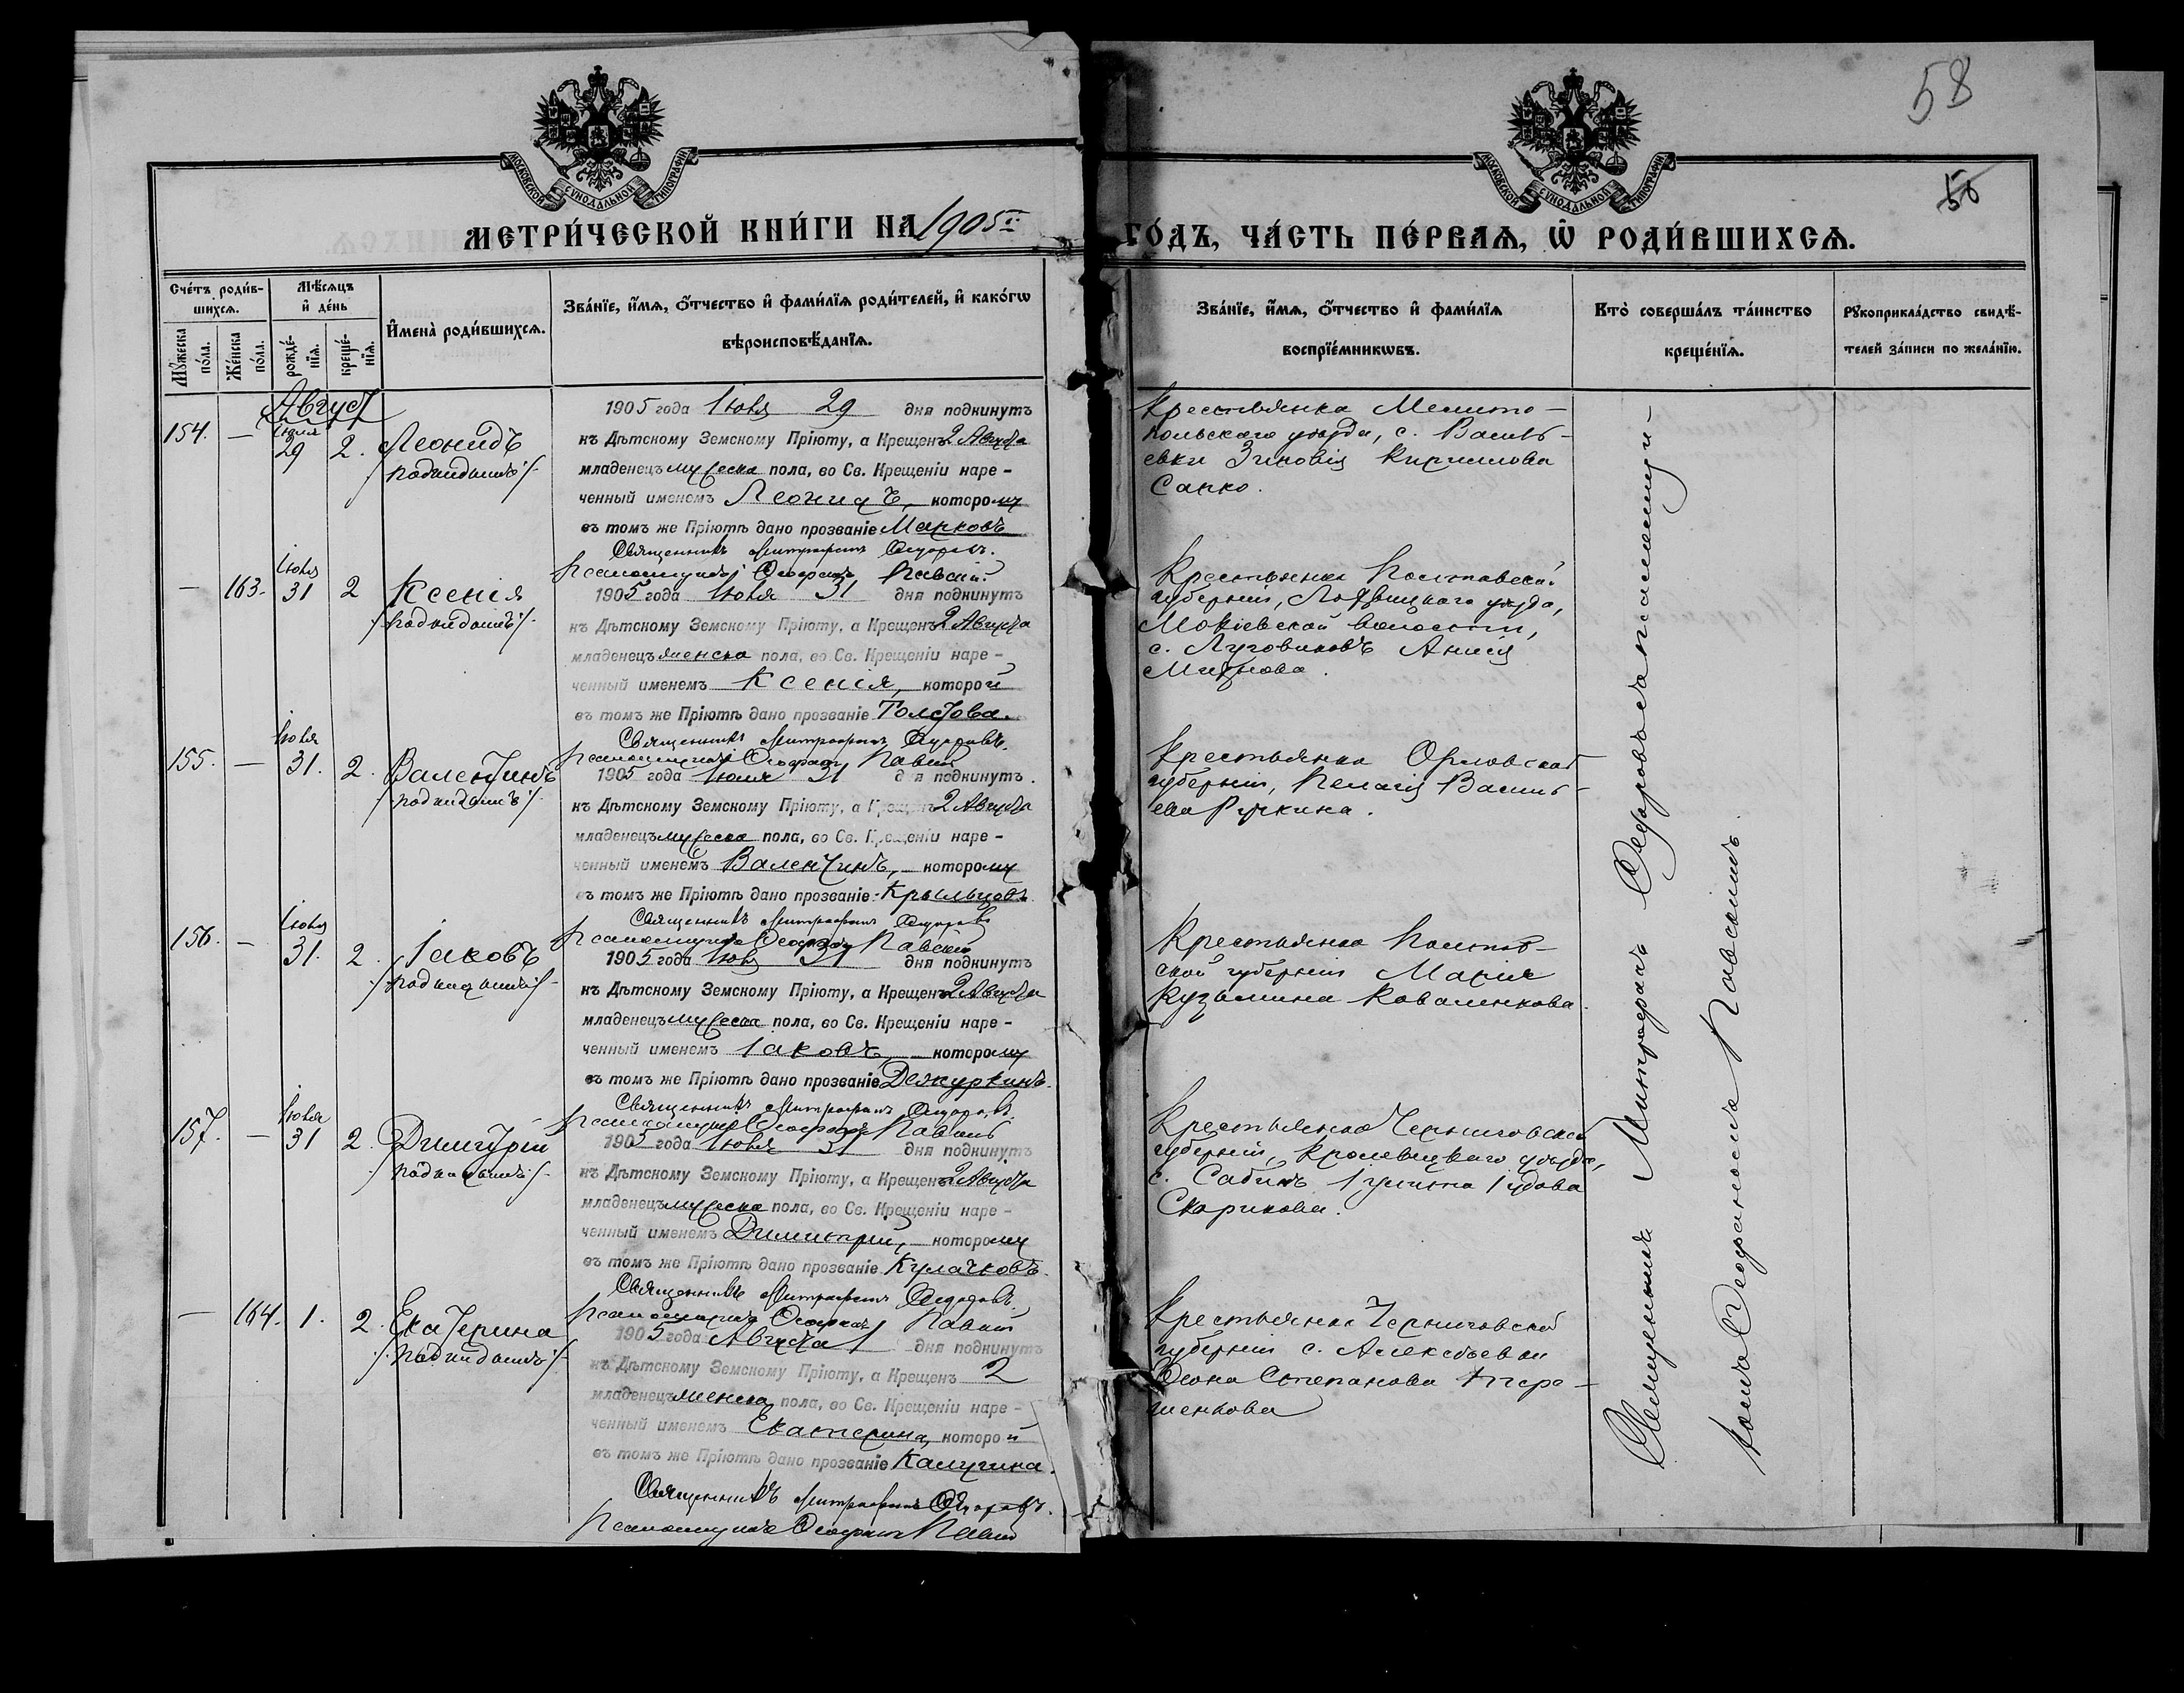 58
50
МОСКОВСКОЙ СѴНОДАЛЬНОЙ ТИПОГРАФІИ
МОСКОВСКОЙ СѴНОДАЛЬНОЙ ТИПОГРАФІИ
МЕТРИ́ЧЕСКОЙ КНИ́ГИ НА 1905й
ГО́ДЪ, ЧА́СТЬ ПЕ́РВАѦ, Ѡ҆ РОДИ́ВШИХСѦ.
Сче́тъ роди́в-
шихсѧ.
Мѣ́сѧцъ
и҆ де́нь
Мꙋ́жеска по́ла.
Же́нска по́ла.
рожде́-
нїѧ.
креще́-
нїѧ.
И҆мена̀ роди́вшихсѧ.
Зва́нїе, и҆́мѧ, ѻ҆́тчество и҆ фами́лїѧ роди́телей, и҆ како́гѡ
вѣроисповѣ́данїѧ.
Зва́нїе, и҆́мѧ, ѻ҆́тчество и҆ фами́лїѧ
воспрїе́мникѡвъ.
Кто̀ соверша́лъ та́инство
креще́нїѧ.
Рꙋкоприкла́дство свидѣ́-
телей за́писи по жела́нїю.
Август
154. — Іюля 29 2. Леонидъ
/подкидышъ/
1905 года Іюля 29 дня подкинутъ
къ Дѣтскому Земскому Пріюту, а Крещенъ 2 Августа
младенецъ мужеска пола, во Св. Крещеніи наре-
ченный именемъ Леонидъ, которому
въ томъ же Пріютѣ дано прозваніе Марковъ
Священникъ Митрофанъ Ѳедоровъ.
Псаломщикъ Ѳеофанъ Павскій.
Крестьянка Мелито-
польскаго уѣзда, с. Василь-
евки Зиновія Кириллова
Сапко.
— 163. Іюля 31 2 Ксенія
/подкидышъ/
1905 года Іюля 31 дня подкинутъ
къ Дѣтскому Земскому Пріюту, а Крещенъ 2 Августа
младенецъ женска пола, во Св. Крещеніи наре-
ченный именемъ Ксенія, которой
въ томъ же Пріютѣ дано прозваніе Толстова.
Священникъ Митрофанъ Ѳедоровъ.
Псаломщикъ Ѳеофанъ Павскій
Крестьянка Полтавской
губерніи, Лохвицкаго уѣзда,
волости,
с. Луговиковъ Анисія
155. — Іюля 31. 2. Валентинъ
/подкидышъ/
1905 года Іюля 31 дня подкинутъ.
къ Дѣтскому Земскому Пріюту, а Крещенъ 2 Августа
младенецъ мужеска пола, во Св. Крещеніи наре-
ченный именемъ Валентинъ, которому
въ томъ же Пріютѣ дано прозваніе Крыльцовъ
Священникъ Митрофанъ Ѳедоровъ
Псаломщикъ Ѳеофанъ Павскій
Крестьянка Орловской
губерніи, Пелагія Василь-
ева
156. — Іюля 31. 2. Іаковъ
/подкидышъ/
1905 года Іюля 31 дня подкинутъ
къ Дѣтскому Земскому Пріюту, а Крещенъ 2 Августа
младенецъ мужеска пола, во Св. Крещеніи наре-
ченный именемъ Іаковъ, которому
въ томъ же Пріютѣ дано прозваніе Дежуркинъ.
Священникъ Митрофанъ Ѳедоровъ.
Псаломщикъ Ѳеофанъ Павскій
Крестьянка Полтав-
ской губерніи Марія
Кузьмина Коваленкова.
157. — Іюля 31 2. Димитрій
/подкидышъ/
1905 года Іюля 31 дня подкинутъ
къ Дѣтскому Земскому Пріюту, а Крещенъ 2 Августа
младенецъ мужеска пола, во Св. Крещеніи наре-
ченный именемъ Димитрій, которому
въ томъ же Пріютѣ дано прозваніе Кулачковъ.
Священникъ Митрофанъ Ѳедоровъ.
Псаломщикъ Ѳеофанъ Павскій
Крестьянка Черниговской
губерніи, Кролевецкаго уѣзда,
с.
Скорикова.
— 164. 1. 2. Екатерина
/подкидышъ/
1905 года Августа 1 дня подкинутъ
къ Дѣтскому Земскому Пріюту, а Крещенъ 2
младенецъ женска пола, во Св. Крещеніи наре-
ченный именемъ Екатерина, которой
въ томъ же Пріютѣ дано прозваніе Калугина.
Священникъ Митрофанъ Ѳедоровъ.
Псаломщикъ Ѳеофанъ Павскій
Крестьянка Черниговской
губерніи с. Алексѣевки
Степанова
Священникъ Митрофанъ Ѳедоровъ съ псаломщи-
комъ Ѳеофаномъ Павскимъ.